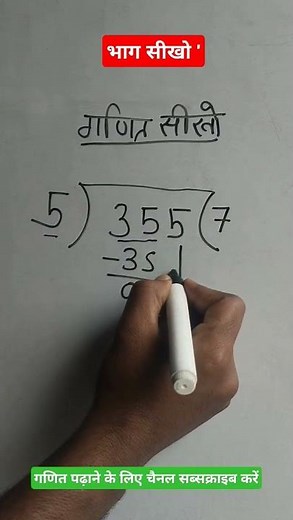 भाग सीखो '
गणित सीखो
5) 355(7
-35
0
गणित पढ़ाने के लिए चैनल सब्सक्राइब करें